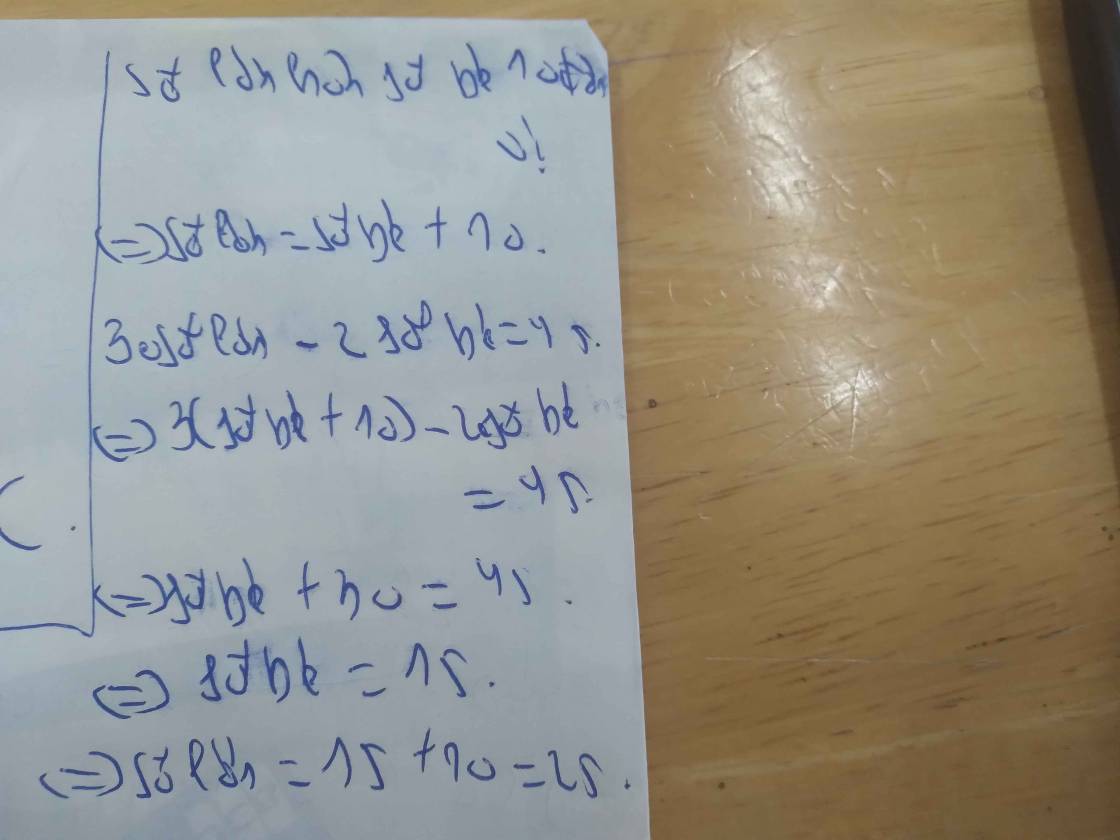 số lớn hơn số bé 10 đơn
vị
<=> số lớn = số bé + 10.
3 số lớn - 2 số bé = 45.
<=> 3(số bé + 10) - 2 số bé
= 45.
<=> số bé + 30 = 45.
<=> số bé = 15.
<=> số lớn = 15 + 10 = 25.